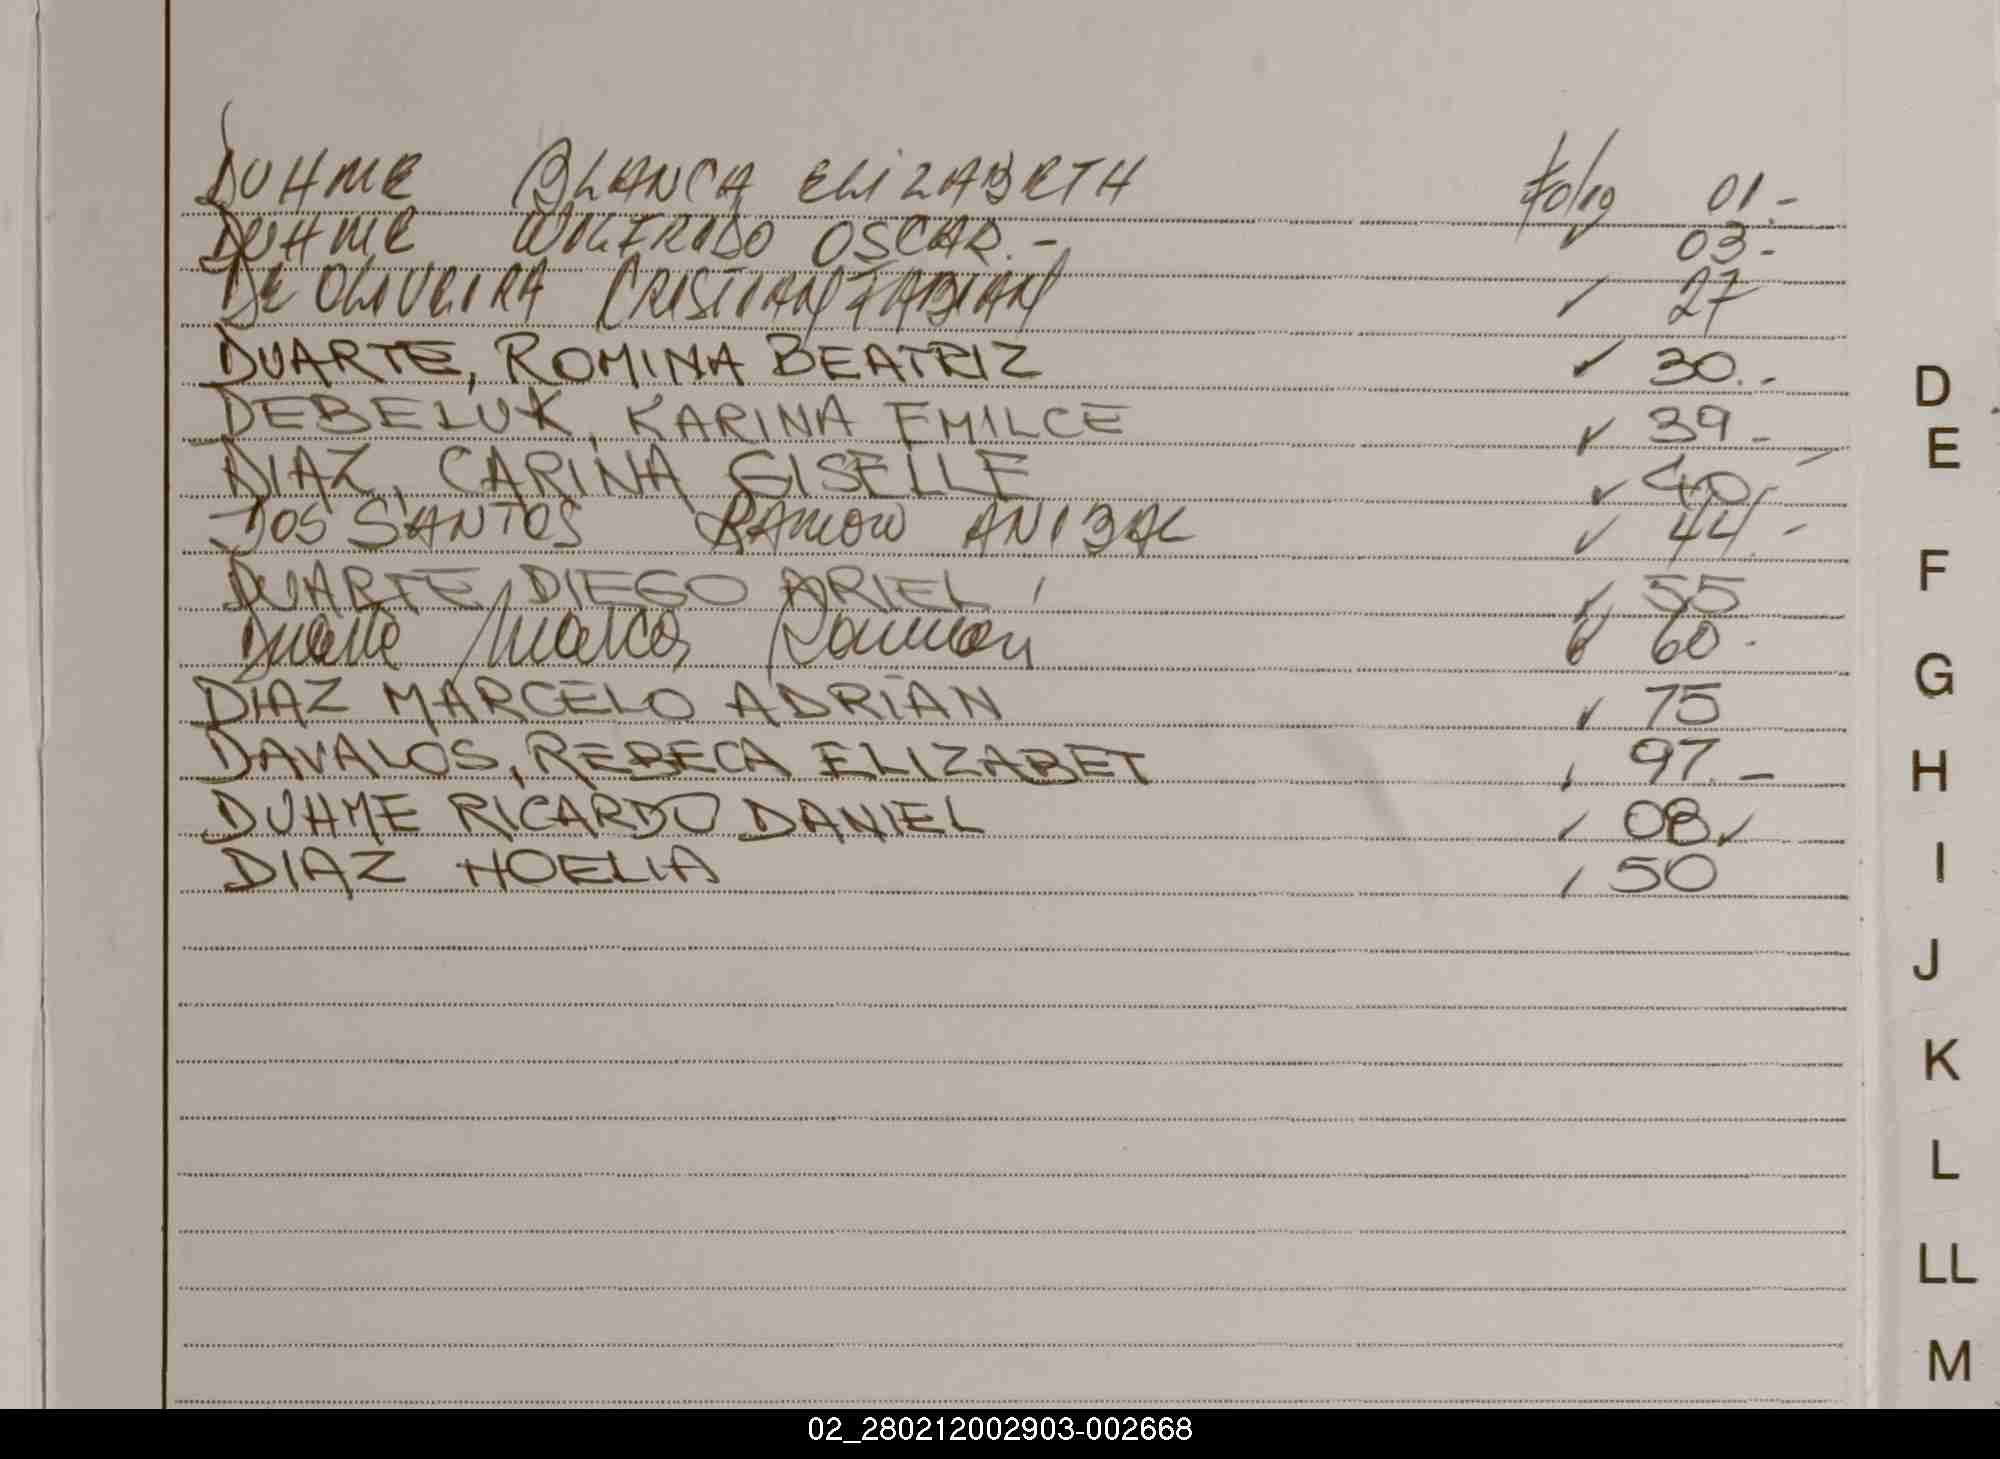 DUHME BLANCA ELIZABETH Folio 01.-
DUHME WOLFRIDO OSCAR.- 03-
DE OLIVEIRA CRISTIAN FABIAN ✓ 27
DUARTE, ROMINA BEATRIZ ✓ 30.-
DEBELUK, KARINA EMILCE ✓ 39-
DIAZ, CARINA GISELLE ✓ 40
DOS SANTOS RAMON ANIBAL ✓ 44-
DUARTE, DIEGO ARIEL ✓ 55
Duarte Marcos Ramon 60-
DIAZ MARCELO ADRIAN ✓ 75
DAVALOS, REBECA ELIZABET 97.-
DUHME RICARDO DANIEL ✓ 08 ✓
DIAZ NOELIA 50
D
E
F
G
H
I
J
K
L
LL
M
02_280212002903-002668